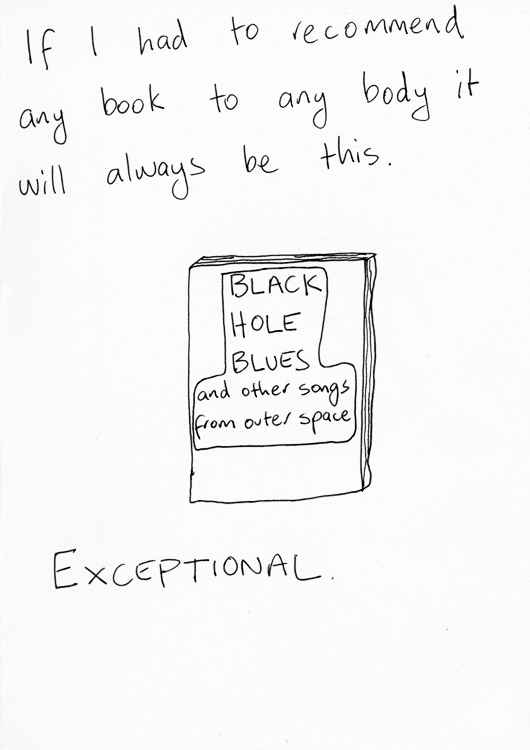 If I had to recommend
any book to any body it
will always be this.
BLACK
HOLE
BLUES
and other songs
from outer space
EXCEPTIONAL.